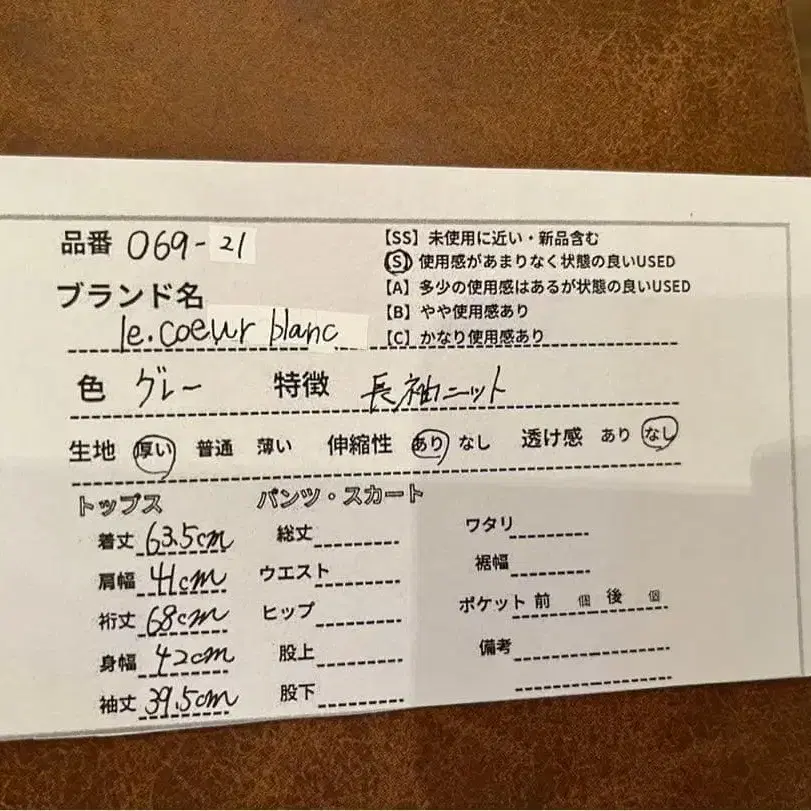 品番 069-21
【SS】未使用に近い・新品含む
【S】使用感があまりなく状態の良いUSED
【A】多少の使用感はあるが状態の良いUSED
【B】やや使用感あり
【C】かなり使用感あり
ブランド名
le.coeur blanc
色 グレー 特徴 長袖ニット
生地 厚い 普通 薄い 伸縮性 あり なし 透け感 あり なし
トップス
着丈 63.5cm
肩幅 41cm
裄丈 68cm
身幅 42cm
袖丈 39.5cm
パンツ・スカート
総丈
ウエスト
ヒップ
股上
股下
ワタリ
裾幅
ポケット 前 個 後 個
備考